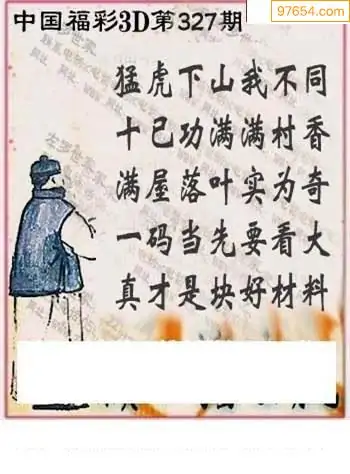 97654.com
中国福彩3D第327期
猛虎下山我不同
十已功满满村香
满屋落叶实为奇
一码当先要看大
真才是块好材料